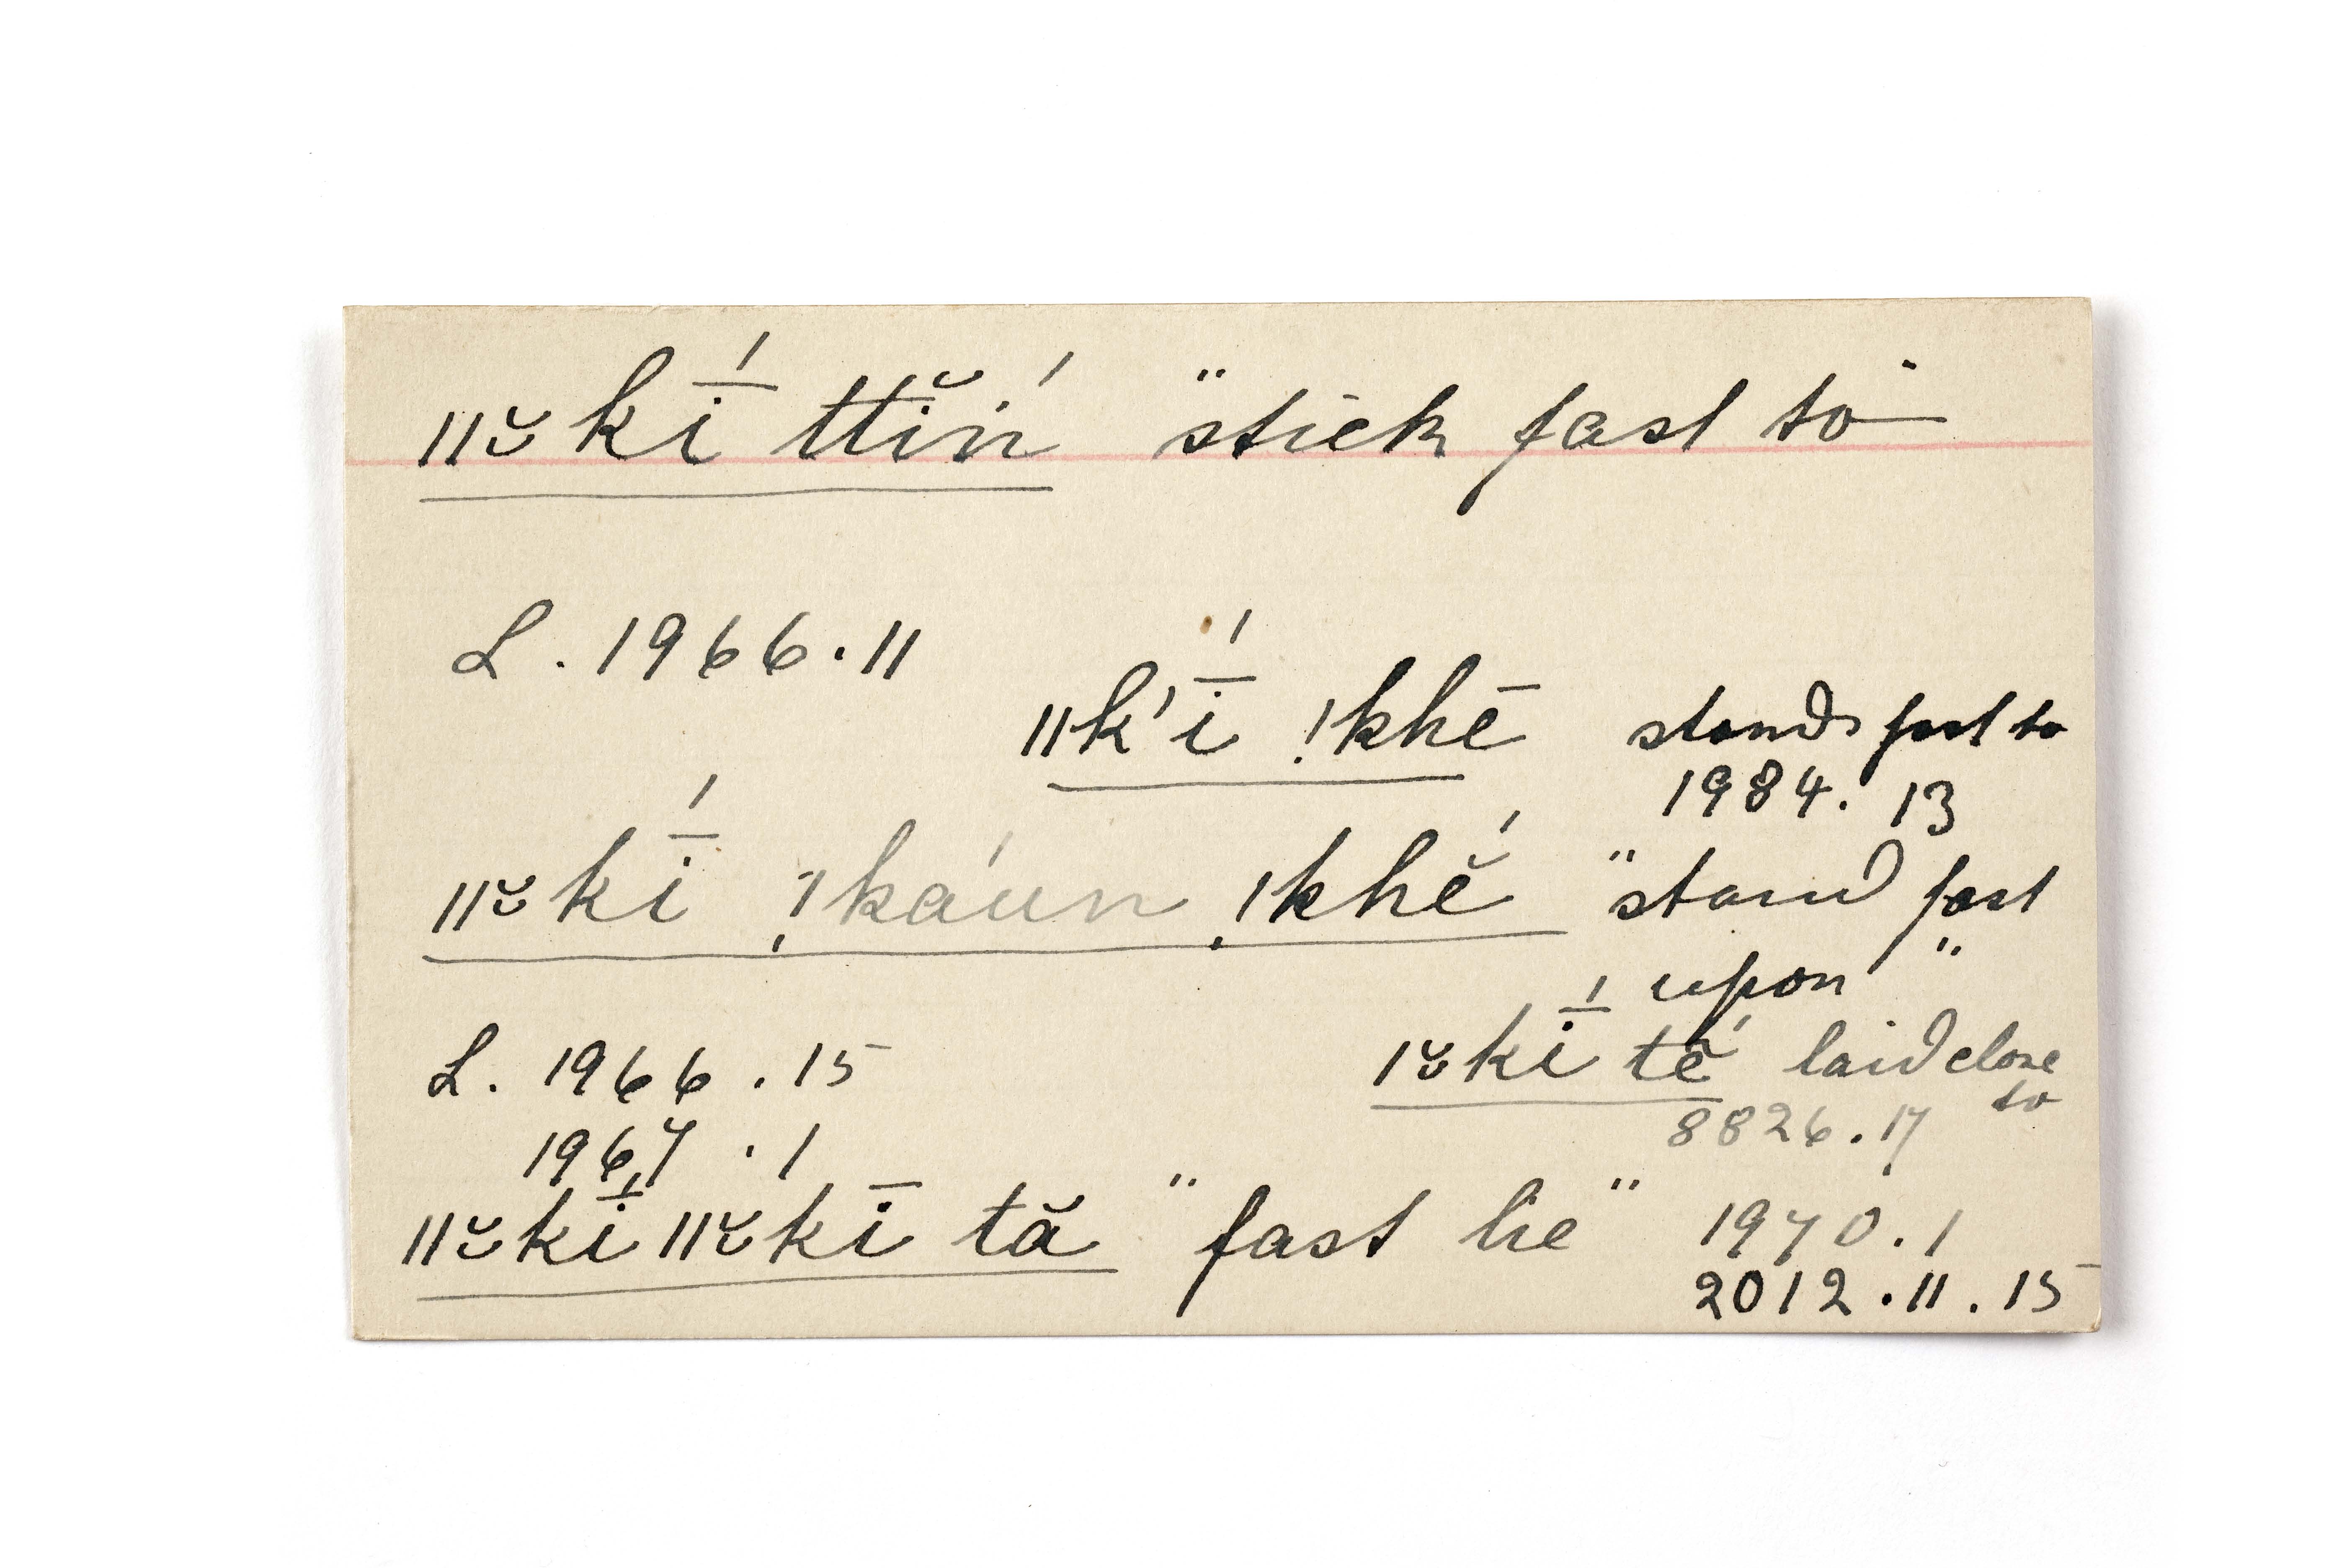 ǁ̆kī́ ttĭń "stick fast to"
L. 1966.11
ǁk'ī́ !khē stands fast to
1984. 13
ǁ̆kī́ !káun !khĕ́ "stand fast
upon"
L. 1966.15
ǀ̆kī́ tĕ́ laid close
to
1967.1
8826.17
ǁ̆kī́ ǁ̆kī tă "fast lie" 1970.1
2012.11.15